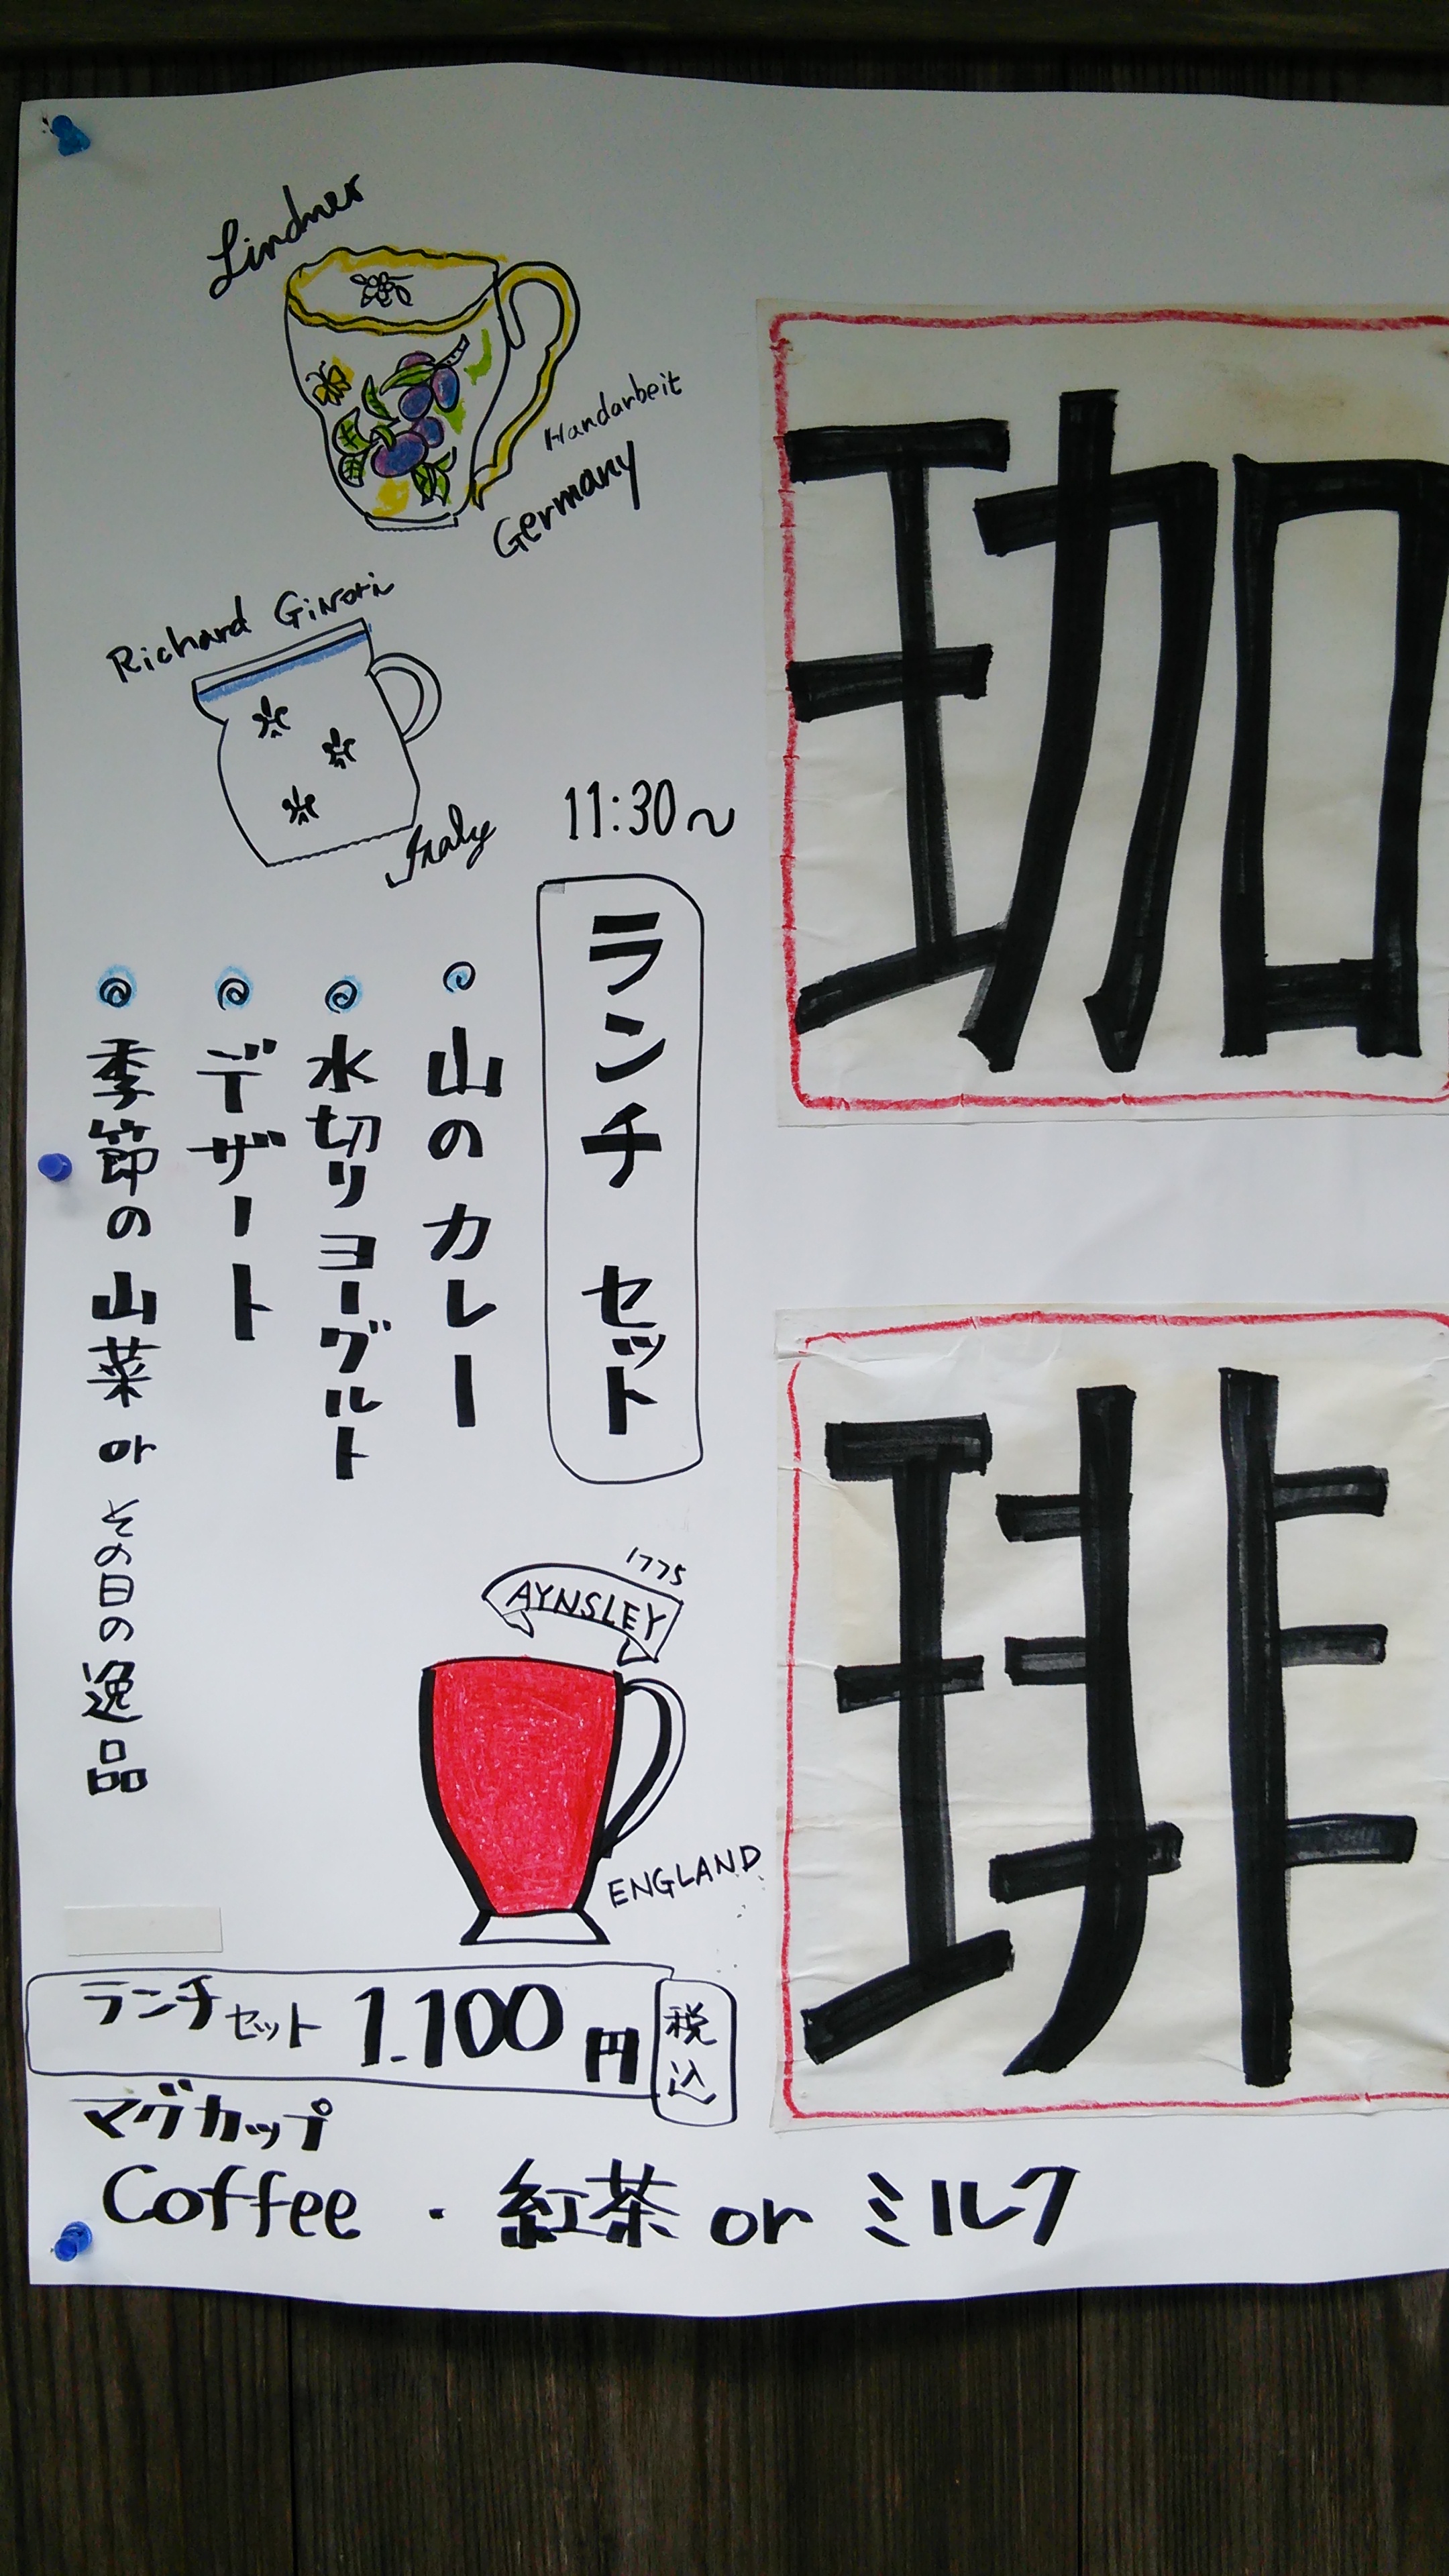 珈
琲
Lindner
Handarbeit
Germany
Richard Ginori
Italy
11:30〜
ランチ セット
山のカレー
水切りヨーグルト
デザート
季節の山菜 or その日の逸品
1775
AYNSLEY
ENGLAND
ランチセット 1.100円 税込
マグカップ
Coffee ・ 紅茶 or ミルク